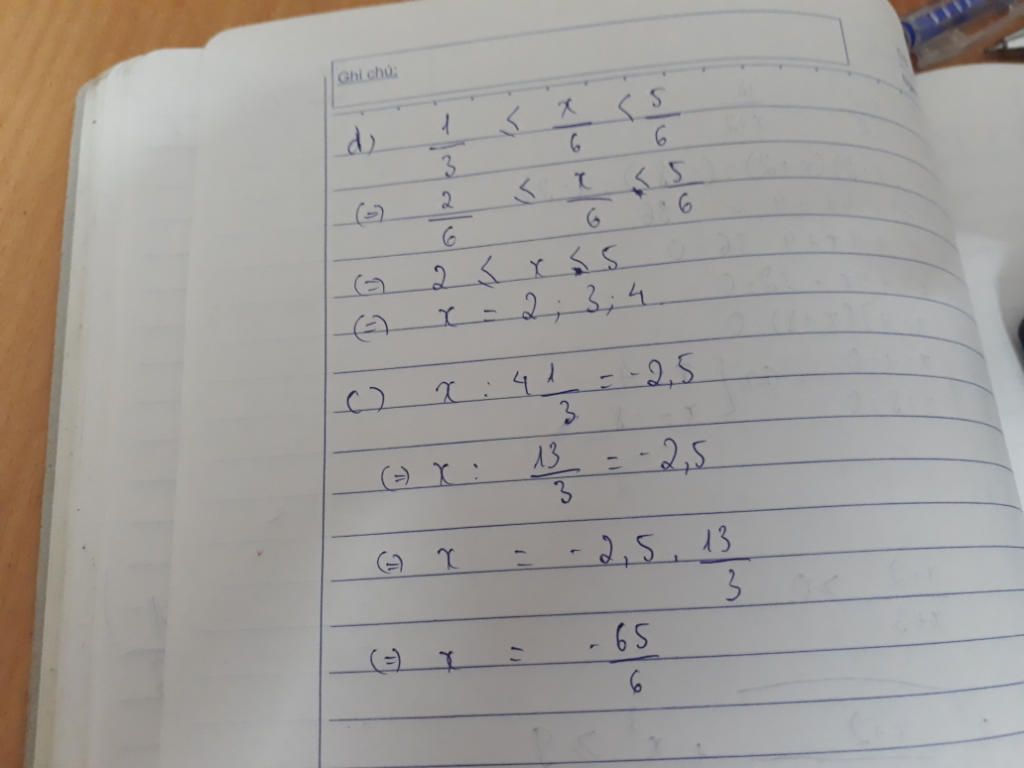 Ghi chú:
d) 1/3 ≤ x/6 < 5/6
(=) 2/6 ≤ x/6 ≤ 5/6
(=) 2 ≤ x ≤ 5
(=) x = 2 ; 3 ; 4
c) x : 4 1/3 = -2,5
(=) x : 13/3 = -2,5
(=) x = -2,5 . 13/3
(=) x = -65/6